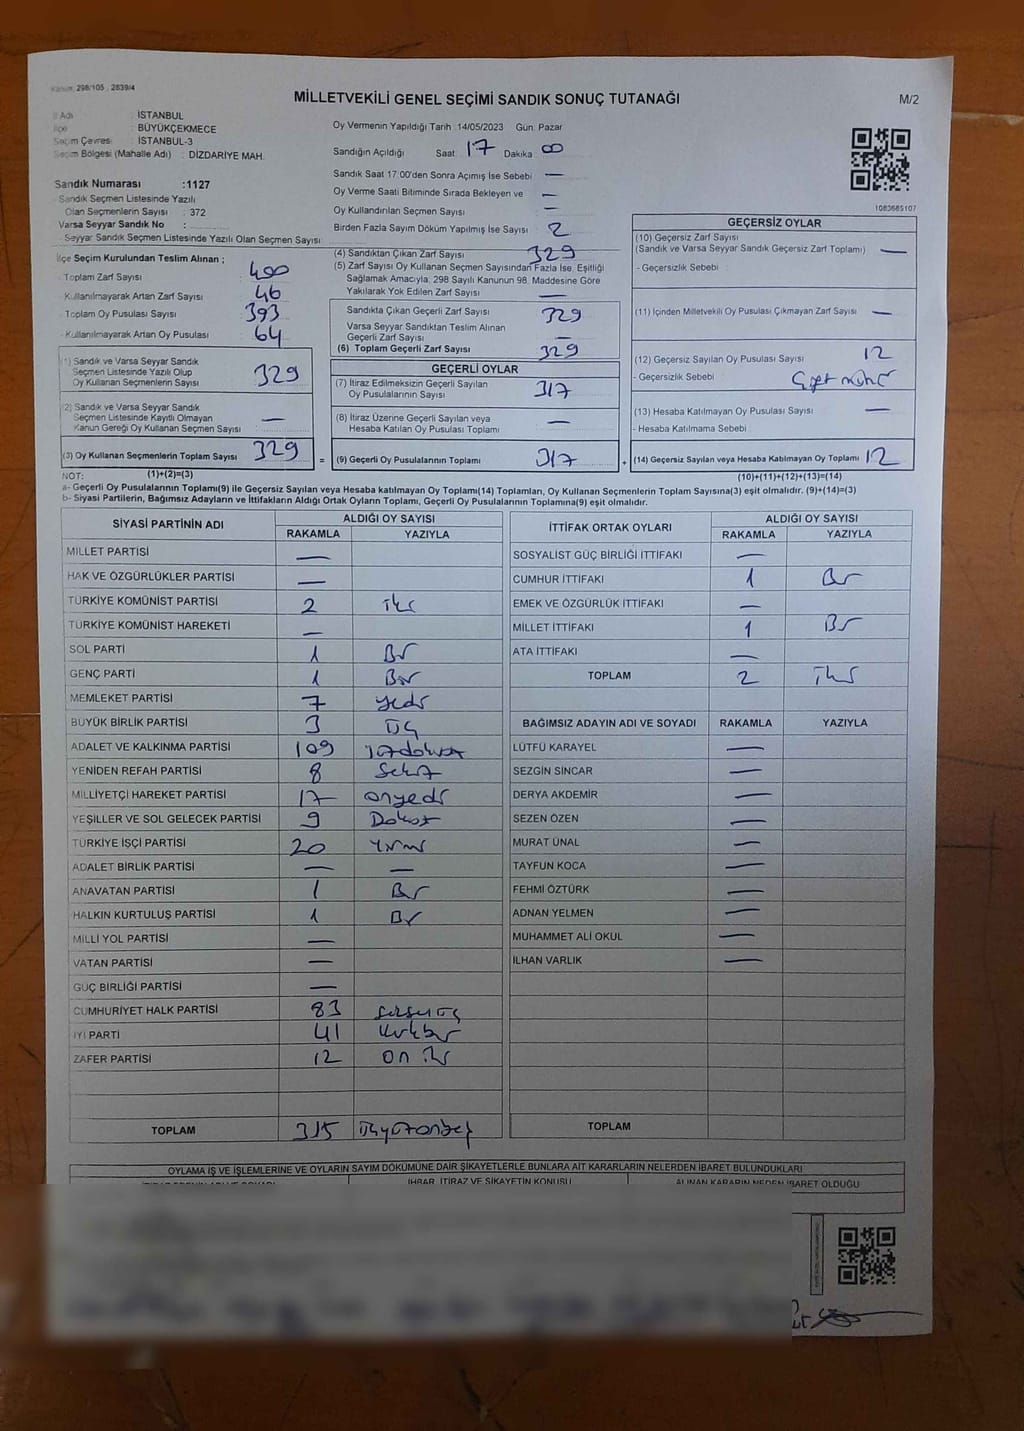 Kanun: 298/105, 2839/4
MİLLETVEKİLİ GENEL SEÇİMİ SANDIK SONUÇ TUTANAĞI
M/2
İl Adı : İSTANBUL
İlçe : BÜYÜKÇEKMECE
Seçim Çevresi : İSTANBUL-3
Seçim Bölgesi (Mahalle Adı) : DİZDARİYE MAH.
Sandık Numarası :1127
Sandık Seçmen Listesinde Yazılı
Olan Seçmenlerin Sayısı : 372
Varsa Seyyar Sandık No :
Seyyar Sandık Seçmen Listesinde Yazılı Olan Seçmen Sayısı
Oy Vermenin Yapıldığı Tarih :14/05/2023 Gün: Pazar
Sandığın Açıldığı Saat: 17 Dakika 00
Sandık Saat 17:00'den Sonra Açımış İse Sebebi —
Oy Verme Saati Bitiminde Sırada Bekleyen ve —
Oy Kullandırılan Seçmen Sayısı —
Birden Fazla Sayım Döküm Yapılmış İse Sayısı 2
1083685107
İlçe Seçim Kurulundan Teslim Alınan ;
Toplam Zarf Sayısı : 400
Kullanılmayarak Artan Zarf Sayısı : 46
Toplam Oy Pusulası Sayısı : 393
Kullanılmayarak Artan Oy Pusulası : 64
(1) Sandık ve Varsa Seyyar Sandık
Seçmen Listesinde Yazılı Olup
Oy Kullanan Seçmenlerin Sayısı 329
(2) Sandık ve Varsa Seyyar Sandık
Seçmen Listesinde Kayıtlı Olmayan
Kanun Gereği Oy Kullanan Seçmen Sayısı : —
(3) Oy Kullanan Seçmenlerin Toplam Sayısı 329
(1)+(2)=(3)
(4) Sandıktan Çıkan Zarf Sayısı 329
(5) Zarf Sayısı Oy Kullanan Seçmen Sayısından Fazla İse, Eşitliği
Sağlamak Amacıyla; 298 Sayılı Kanunun 98. Maddesine Göre
Yakılarak Yok Edilen Zarf Sayısı —
Sandıkta Çıkan Geçerli Zarf Sayısı 329
Varsa Seyyar Sandıktan Teslim Alınan
Geçerli Zarf Sayısı —
(6) Toplam Geçerli Zarf Sayısı 329
GEÇERLİ OYLAR
(7) İtiraz Edilmeksizin Geçerli Sayılan
Oy Pusulalarının Sayısı: 317
(8) İtiraz Üzerine Geçerli Sayılan veya
Hesaba Katılan Oy Pusulası Toplamı —
= (9) Geçerli Oy Pusulalarının Toplamı 317
GEÇERSİZ OYLAR
(10) Geçersiz Zarf Sayısı
(Sandık ve Varsa Seyyar Sandık Geçersiz Zarf Toplamı) —
- Geçersizlik Sebebi :
(11) İçinden Milletvekili Oy Pusulası Çıkmayan Zarf Sayısı —
(12) Geçersiz Sayılan Oy Pusulası Sayısı 12
- Geçersizlik Sebebi : Çift mühür
(13) Hesaba Katılmayan Oy Pusulası Sayısı —
- Hesaba Katılmama Sebebi
+ (14) Geçersiz Sayılan veya Hesaba Katılmayan Oy Toplamı 12
(10)+(11)+(12)+(13)=(14)
NOT:
a- Geçerli Oy Pusulalarının Toplamı(9) ile Geçersiz Sayılan veya Hesaba katılmayan Oy Toplamı(14) Toplamları, Oy Kullanan Seçmenlerin Toplam Sayısına(3) eşit olmalıdır. (9)+(14)=(3)
b- Siyasi Partilerin, Bağımsız Adayların ve İttifakların Aldığı Ortak Oyların Toplamı, Geçerli Oy Pusulalarının Toplamına(9) eşit olmalıdır.
SİYASİ PARTİNİN ADI ALDIĞI OY SAYISI
RAKAMLA YAZIYLA
MİLLET PARTİSİ —
HAK VE ÖZGÜRLÜKLER PARTİSİ —
TÜRKİYE KOMÜNİST PARTİSİ 2 İki
TÜRKİYE KOMÜNİST HAREKETİ —
SOL PARTİ 1 Bir
GENÇ PARTİ 1 Bir
MEMLEKET PARTİSİ 7 Yedi
BÜYÜK BİRLİK PARTİSİ 3 Üç
ADALET VE KALKINMA PARTİSİ 109 yüzdokuz
YENİDEN REFAH PARTİSİ 8 Sekiz
MİLLİYETÇİ HAREKET PARTİSİ 17 onyedi
YEŞİLLER VE SOL GELECEK PARTİSİ 9 Dokuz
TÜRKİYE İŞÇİ PARTİSİ 20 Yirmi
ADALET BİRLİK PARTİSİ — —
ANAVATAN PARTİSİ 1 Bir
HALKIN KURTULUŞ PARTİSİ 1 Bir
MİLLİ YOL PARTİSİ —
VATAN PARTİSİ —
GÜÇ BİRLİĞİ PARTİSİ —
CUMHURİYET HALK PARTİSİ 83 seksenüç
İYİ PARTİ 41 Kırkbir
ZAFER PARTİSİ 12 on iki
TOPLAM 315 Üçyüzonbeş
İTTİFAK ORTAK OYLARI ALDIĞI OY SAYISI
RAKAMLA YAZIYLA
SOSYALİST GÜÇ BİRLİĞİ İTTİFAKI —
CUMHUR İTTİFAKI 1 Bir
EMEK VE ÖZGÜRLÜK İTTİFAKI —
MİLLET İTTİFAKI 1 Bir
ATA İTTİFAKI —
TOPLAM 2 İki
BAĞIMSIZ ADAYIN ADI VE SOYADI RAKAMLA YAZIYLA
LÜTFÜ KARAYEL —
SEZGİN SİNCAR —
DERYA AKDEMİR —
SEZEN ÖZEN —
MURAT ÜNAL —
TAYFUN KOCA —
FEHMİ ÖZTÜRK —
ADNAN YELMEN —
MUHAMMET ALİ OKUL —
İLHAN VARLIK —
TOPLAM
OYLAMA İŞ VE İŞLEMLERİNE VE OYLARIN SAYIM DÖKÜMÜNE DAİR ŞİKAYETLERLE BUNLARA AİT KARARLARIN NELERDEN İBARET BULUNDUKLARI
İHBAR, İTİRAZ VE ŞİKAYETİN KONUSU ALINAN KARARIN NEDEN İBARET OLDUĞU